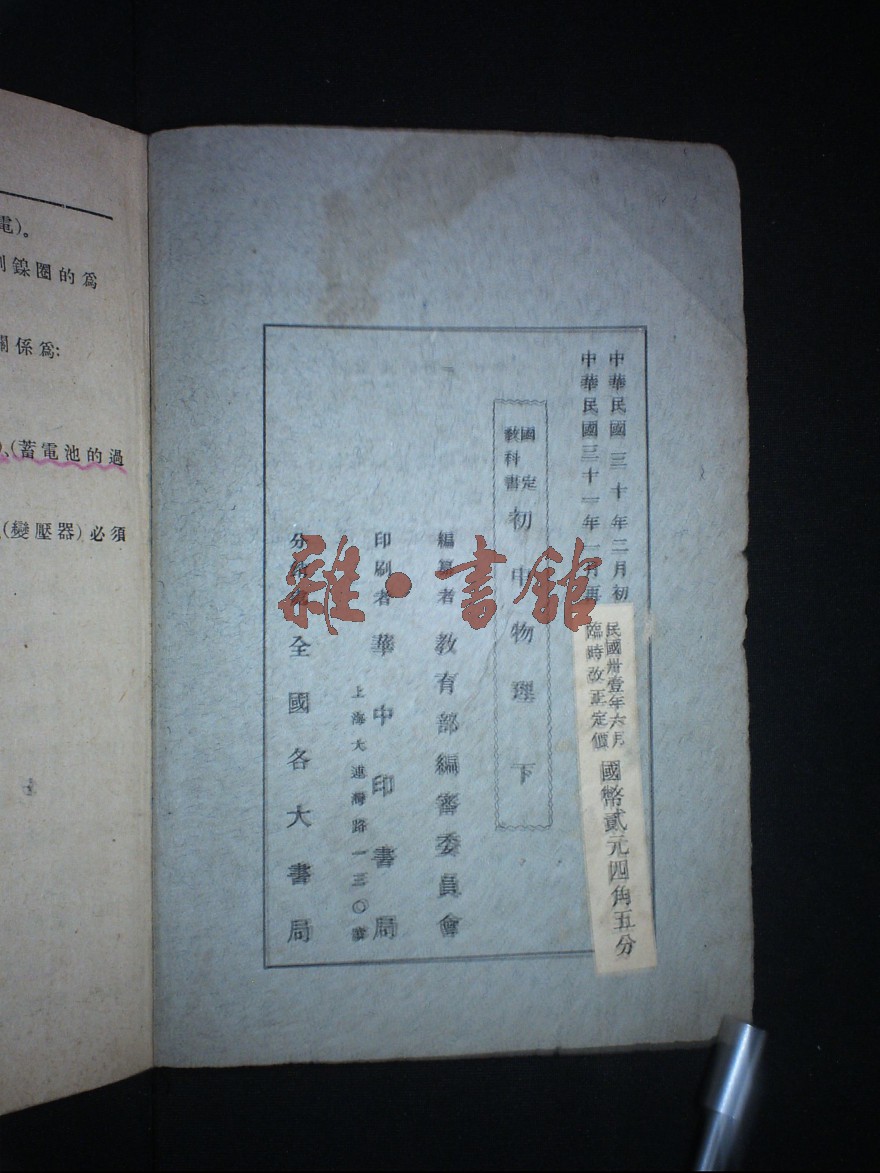 中華民國三十年二月初
中華民國三十一年一月再
民國卅壹年六月
臨時改正定價
國幣貳元四角五分
國定
教科書
初中物理下
編纂者 教育部編審委員會
印刷者 華中印書局
上海大連灣路一三〇號
全國各大書局
雜·書館
電)。
鎳圈的爲
關係爲:
(蓄電池的過
(變壓器)必須